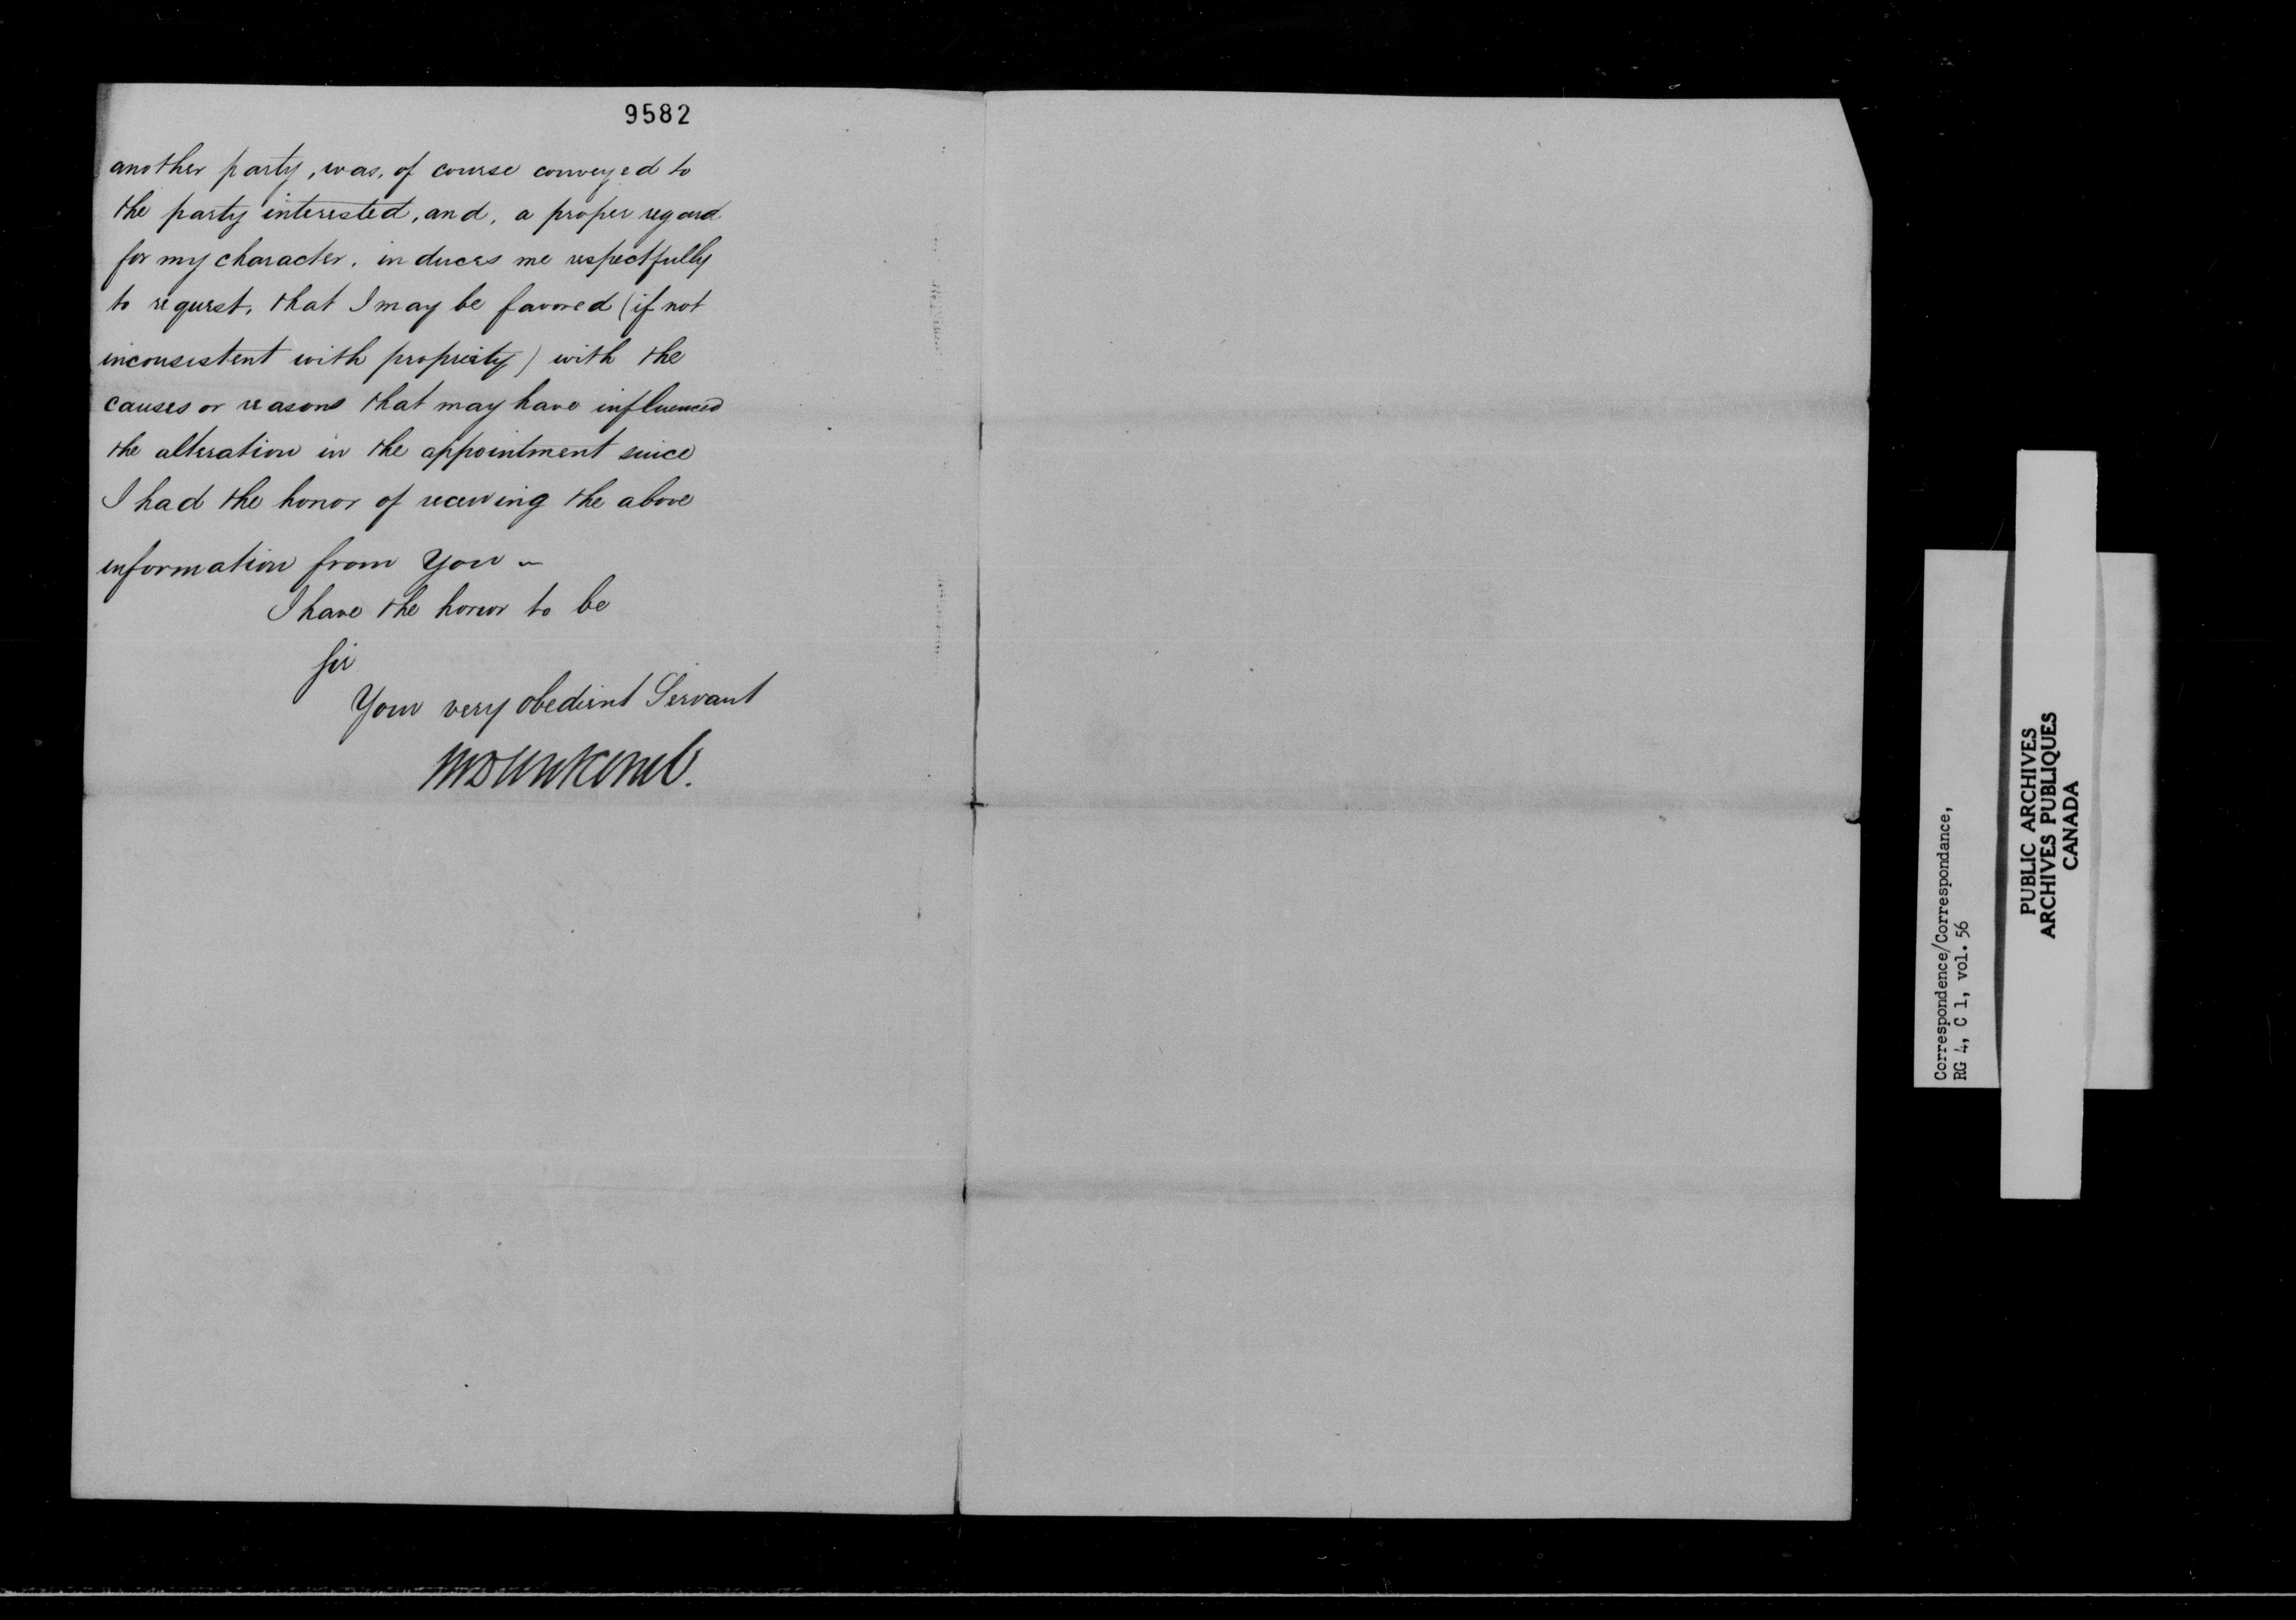 9582
another party, was, of course conveyed to
the party interested, and, a proper regard
for my character, induces me respectfully
to request, that I may be favored (if not
inconsistent with propriety) with the
causes or reasons that may have influenced
the alteration in the appointment since
I had the honor of receiving the above
information from You ~
I have the honor to be
Sir
Your very obedient Servant
Correspondence/Correspondance,
RG 4, C 1, vol. 56
PUBLIC ARCHIVES
ARCHIVES PUBLIQUES
CANADA